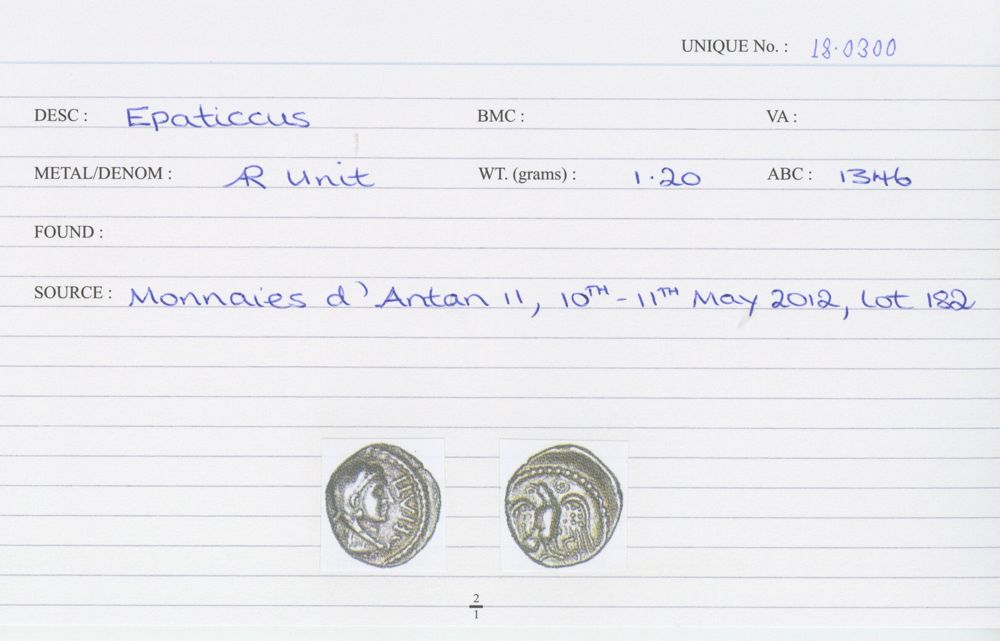 UNIQUE No. : 18·0300
DESC : Epaticcus BMC : VA :
METAL/DENOM : AR Unit WT. (grams) : 1·20 ABC : 1346
FOUND :
SOURCE : Monnaies d'Antan 11, 10TH - 11TH May 2012, Lot 182
2
1